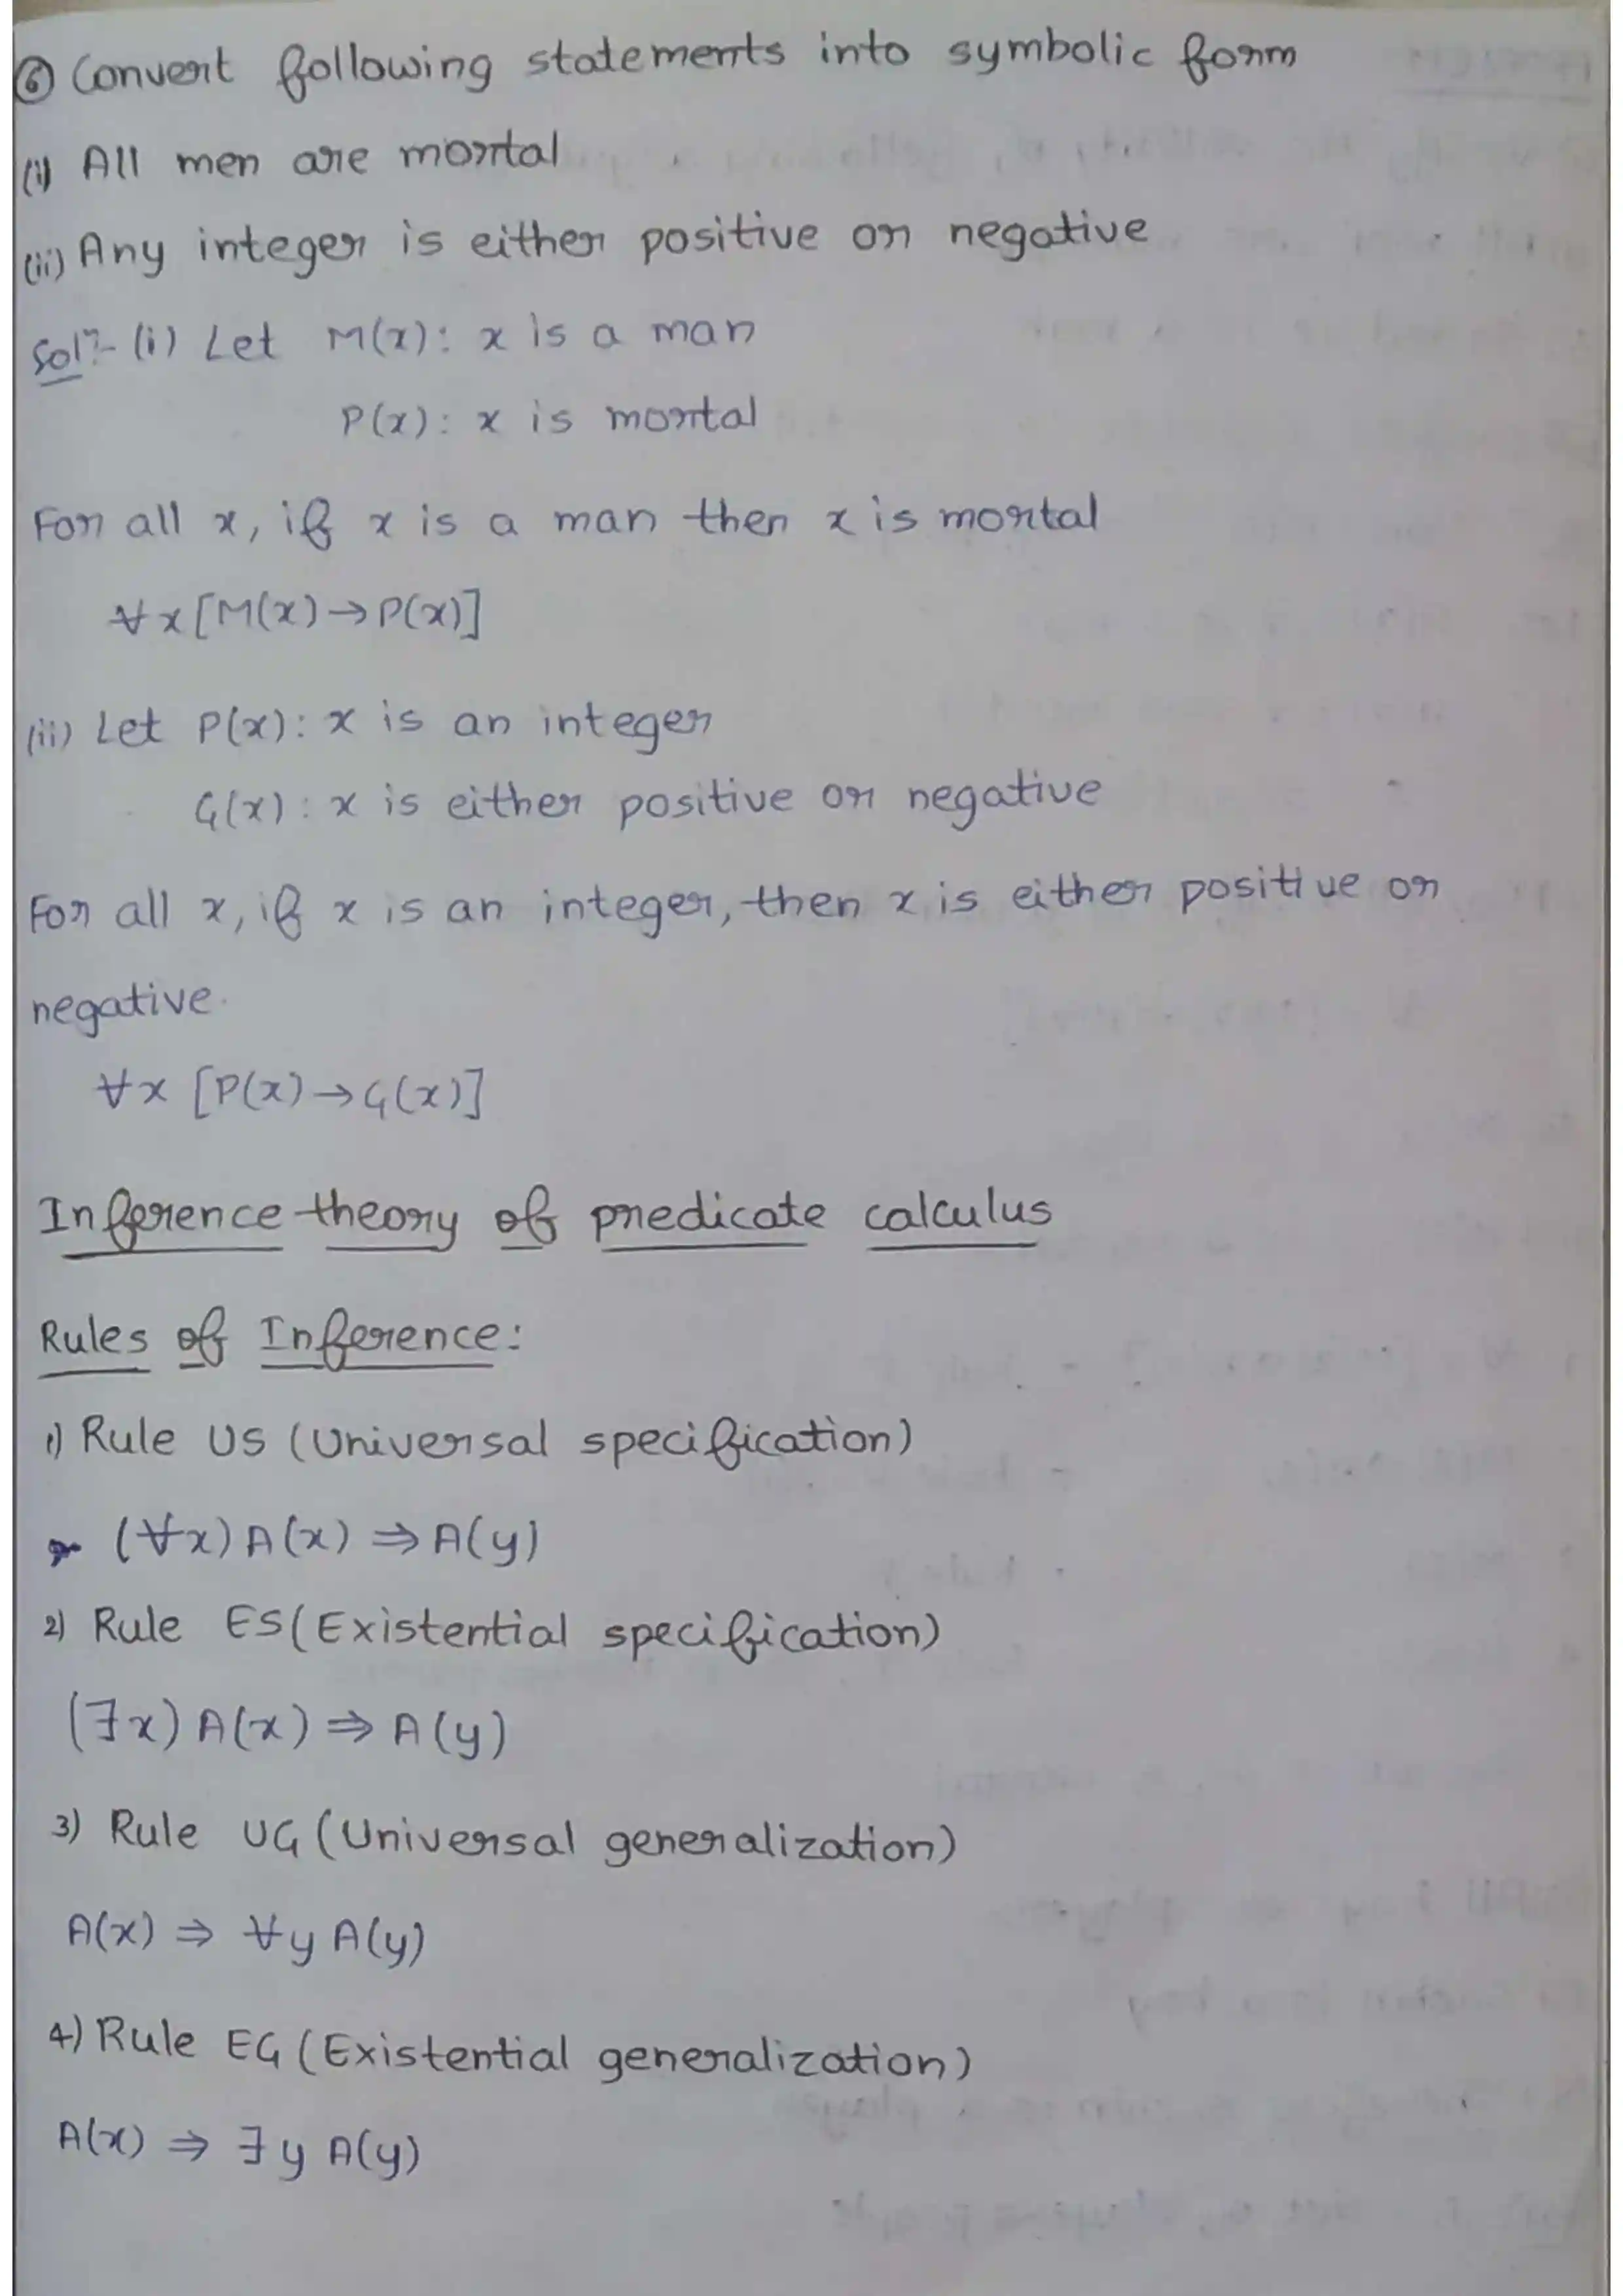 ⑥ Convert following statements into symbolic form
(i) All men are mortal
(ii) Any integer is either positive or negative
Solⁿ:- (i) Let M(x): x is a man
P(x): x is mortal
For all x, if x is a man then x is mortal
∀x[M(x)→P(x)]
(ii) Let P(x): x is an integer
G(x): x is either positive or negative
For all x, if x is an integer, then x is either positive or
negative.
∀x [P(x)→G(x)]
Inference theory of predicate calculus
Rules of Inference:
1) Rule US (Universal specification)
(∀x) A(x) ⇒ A(y)
2) Rule ES (Existential specification)
(∃x) A(x) ⇒ A(y)
3) Rule UG (Universal generalization)
A(x) ⇒ ∀y A(y)
4) Rule EG (Existential generalization)
A(x) ⇒ ∃y A(y)